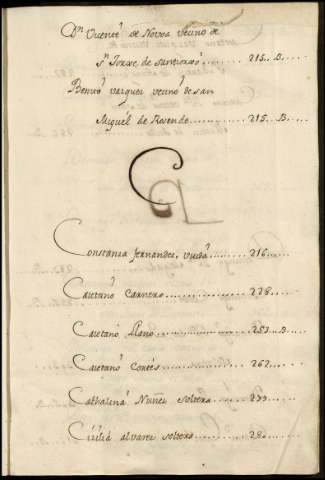 Dn Vicente de Novoa Vecino de
Sn Jorxe de santiorxo ........ 215..B..
Benito Vazquez vecino de san
Miguel de Rosende ............ 215..B...
C
Constanza fernandez, viuda ........ 216....
Caietano Carnero .............. 228....
Caietano Llano ................ 253..B..
Caietano Cortés ............... 262....
Cathalina Nuñez soltera ... 273....
Cicilia alvarez soltera ...... 280....